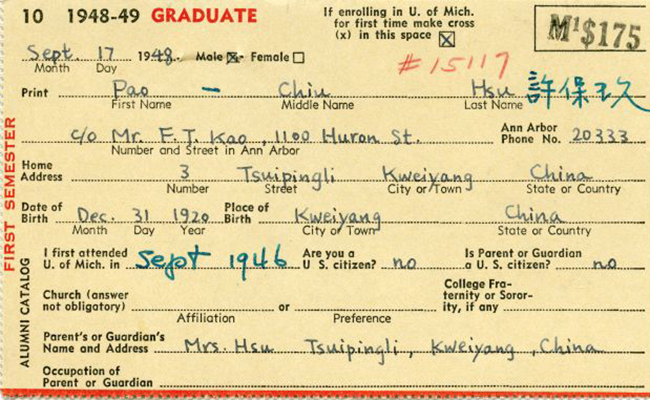 10 1948-49 GRADUATE If enrolling in U. of Mich. for first time make cross (x) in this space ☒ M¹$175
Sept. 17 1948. Male ☒ Female ☐ #15117
Month Day
Print Pao - Chiu Hsu 許保玖
First Name Middle Name Last Name
c/o Mr. F. T. Kao, 1100 Huron St. Ann Arbor Phone No. 20333
Number and Street in Ann Arbor
Home Address 3 Tsuipingli Kweiyang China
Number Street City or Town State or Country
Date of Birth Dec. 31 1920 Place of Birth Kweiyang China
Month Day Year City or Town State or Country
I first attended U. of Mich. in Sept 1946 Are you a U S. citizen? no Is Parent or Guardian a U. S. citizen? no
Church (answer not obligatory) or College Fraternity or Sorority, if any
Affiliation Preference
Parent's or Guardian's Name and Address Mrs. Hsu Tsuipingli, Kweiyang, China
Occupation of Parent or Guardian
FIRST SEMESTER
ALUMNI CATALOG